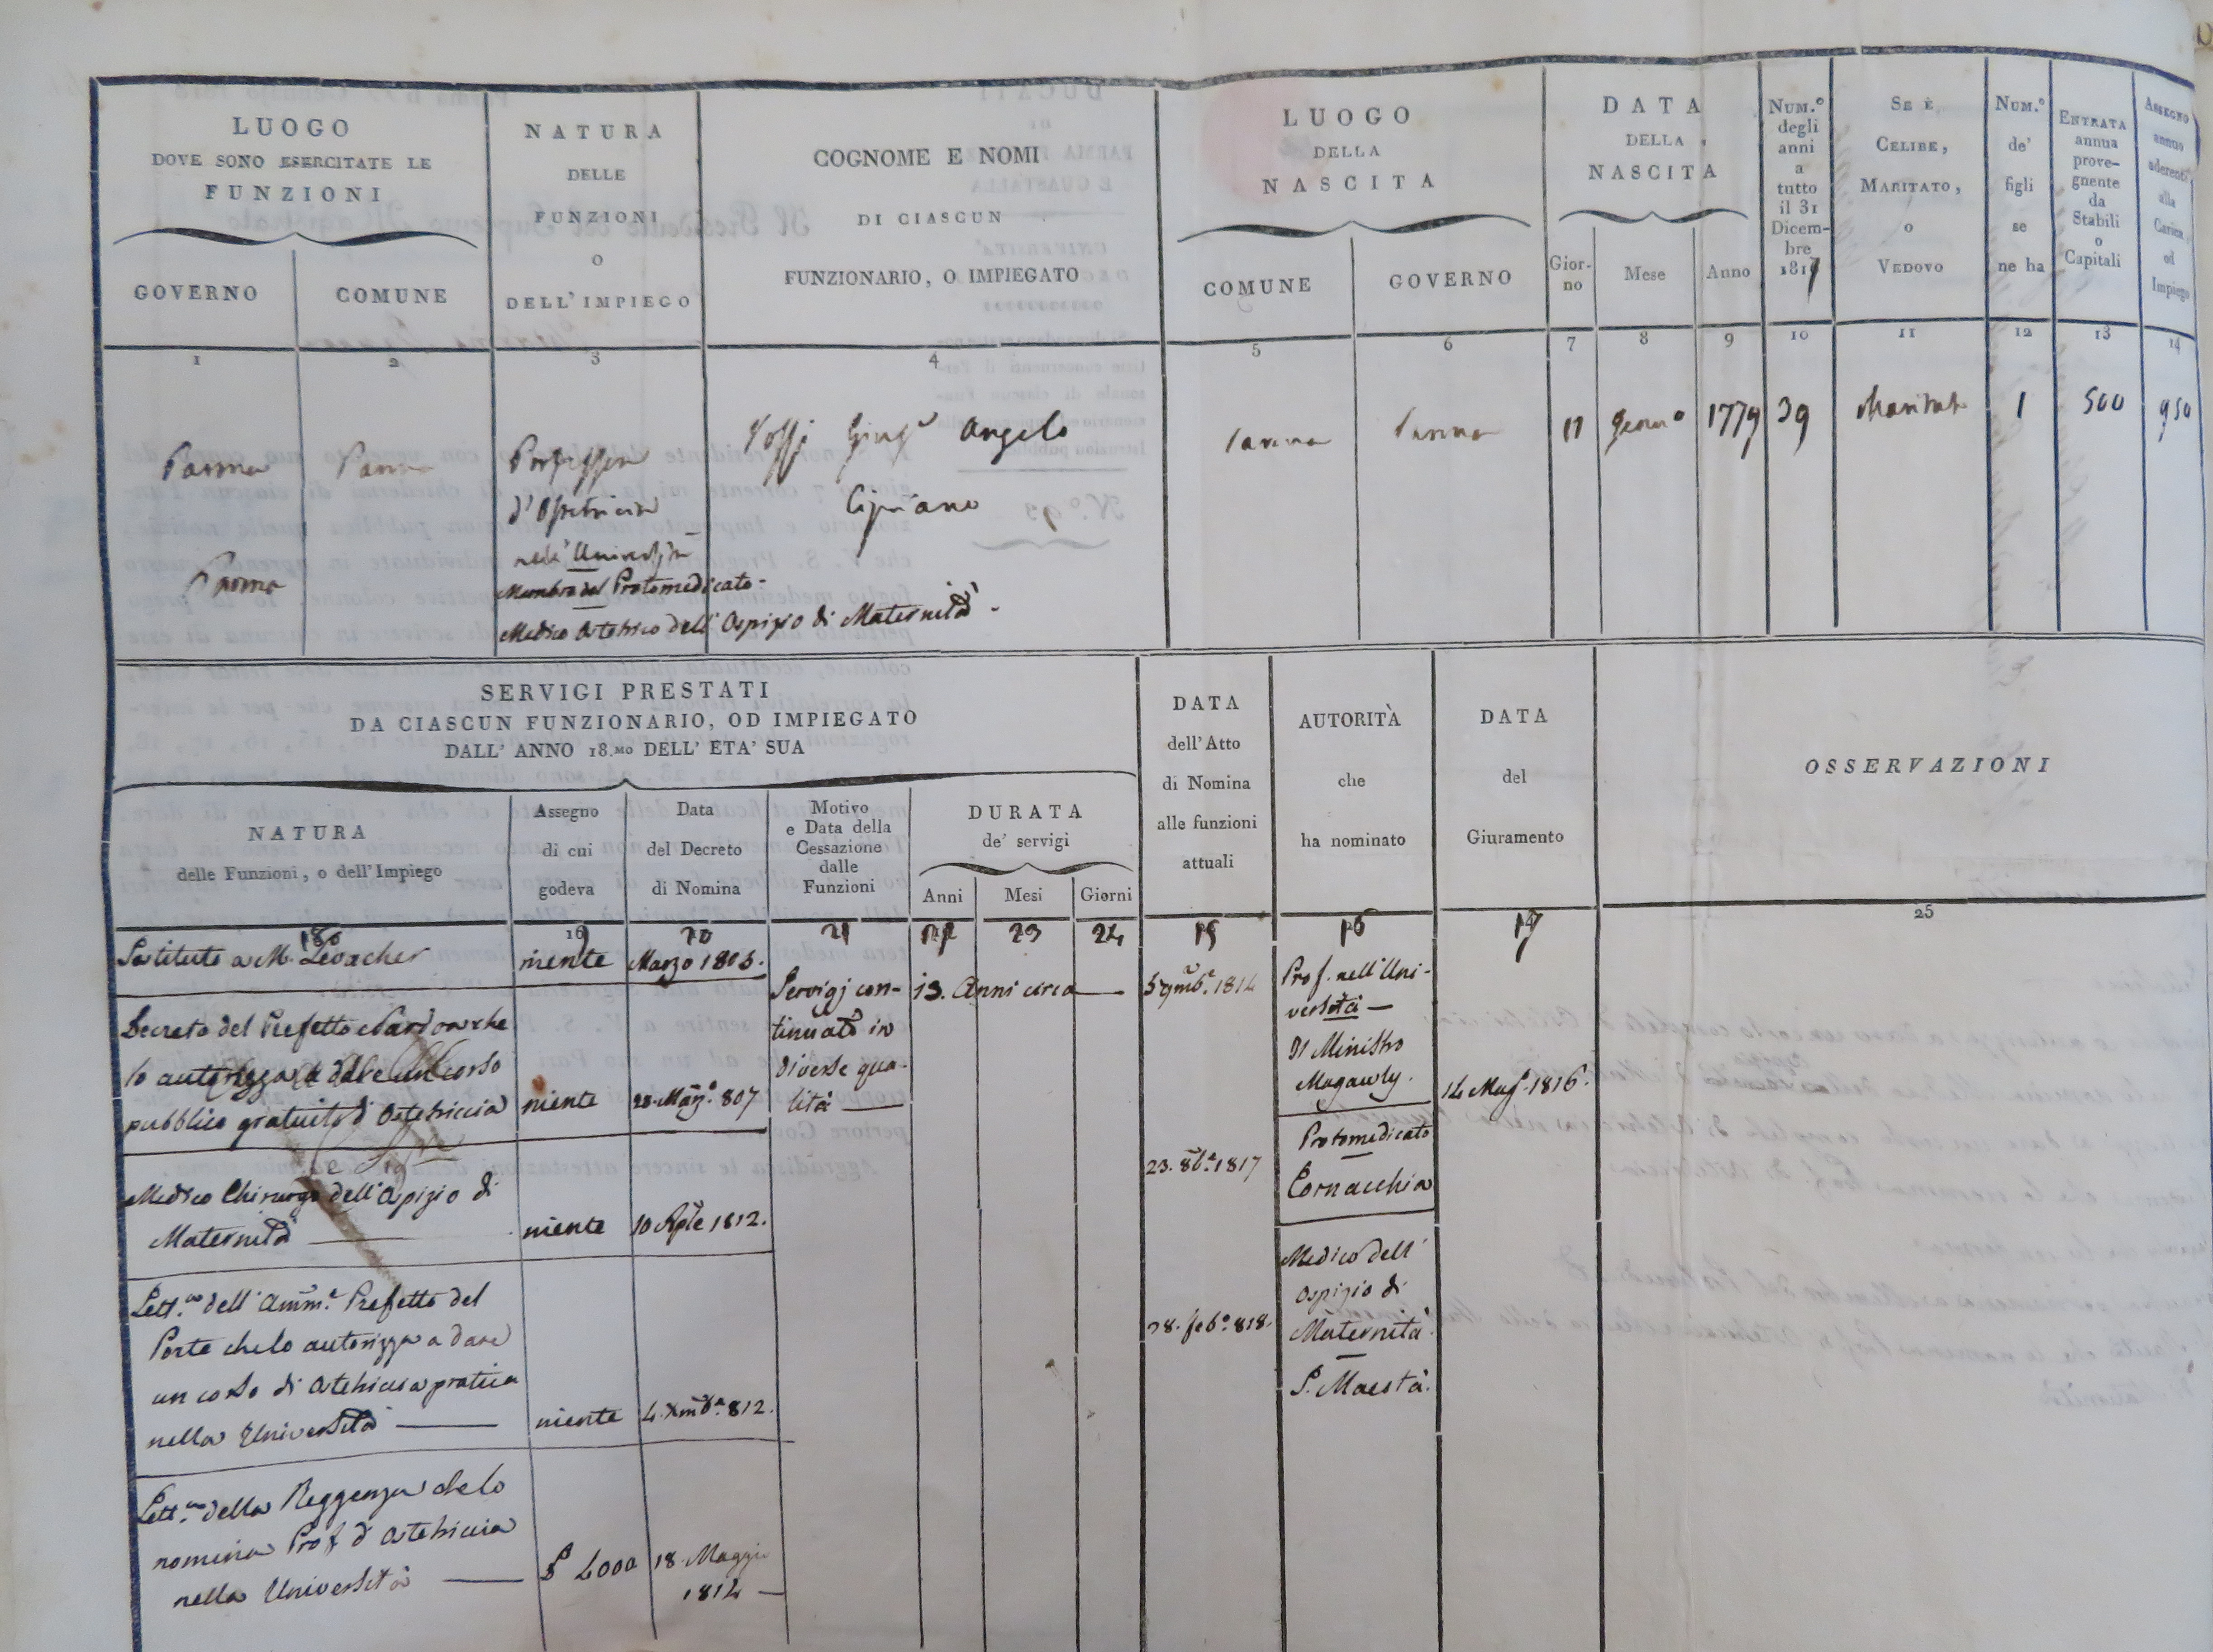 LUOGO
DOVE SONO ESERCITATE LE
FUNZIONI
GOVERNO
COMUNE
NATURA
DELLE
FUNZIONI
O
DELL' IMPIEGO
COGNOME E NOMI
DI CIASCUN
FUNZIONARIO, O IMPIEGATO
LUOGO
DELLA
NASCITA
COMUNE
GOVERNO
DATA
DELLA
NASCITA
Gior-
no
Mese
Anno
NUM.º
degli
anni
a
tutto
il 31
Dicem-
bre
1817
SE È
CELIBE,
MARITATO,
O
VEDOVO
NUM.º
de'
figli
se
ne ha
ENTRATA
annua
prove-
gnente
da
Stabili
o
Capitali
ASSEGNO
annuo
aderente
alla
Carica,
od
Impiego
1 2 3 4 5 6 7 8 9 10 11 12 13 14
Parma
Parma
Professore
d'Ostetricia
nell' Università
Membro del Protomedicato
Medico Ostetrico dell' Ospizio di Maternità
Parma
Angelo
Cipriano
Parma
Parma
11
Genn.º
1779
39
Maritato
1
500
950
SERVIGI PRESTATI
DA CIASCUN FUNZIONARIO, OD IMPIEGATO
DALL' ANNO 18.MO DELL' ETA' SUA
NATURA
delle Funzioni, o dell'Impiego
Assegno
di cui
godeva
Data
del Decreto
di Nomina
Motivo
e Data della
Cessazione
dalle
Funzioni
DURATA
de' servigi
Anni
Mesi
Giorni
DATA
dell'Atto
di Nomina
alle funzioni
attuali
AUTORITÀ
che
ha nominato
DATA
del
Giuramento
OSSERVAZIONI
18 19 20 21 22 23 24 15 16 17 25
Sostituto a M. Levacher
niente
Marzo 1805.
Decreto del Prefetto Nardon che
lo autorizza a dare un corso
pubblico gratuito d'Ostetricia
niente
28. Marz.º 807
Medico Chirurgo dell'Ospizio di
Maternità
niente
10 Aple 1812.
Lett.ª dell' Amm.e Prefetto del
che lo autorizza a dare
un corso di Ostetricia pratica
nella Università
niente
4. Xmb.e 812.
Lett.ª della Reggenza che lo
nomina Prof. d'Ostetricia
nella Università
4000
18. Maggio
1814
Servigj con-
tinuati in
diverse qua-
lità
13. Anni circa
1814
Prof. nell'Uni-
versità
Il Ministro
Magawly.
14 Mag. 1816.
23. 8b.e 1817
Protomedicato
Cornacchia
28. feb.º 818.
Medico dell'
Ospizio di
Maternità
S. Maestà.